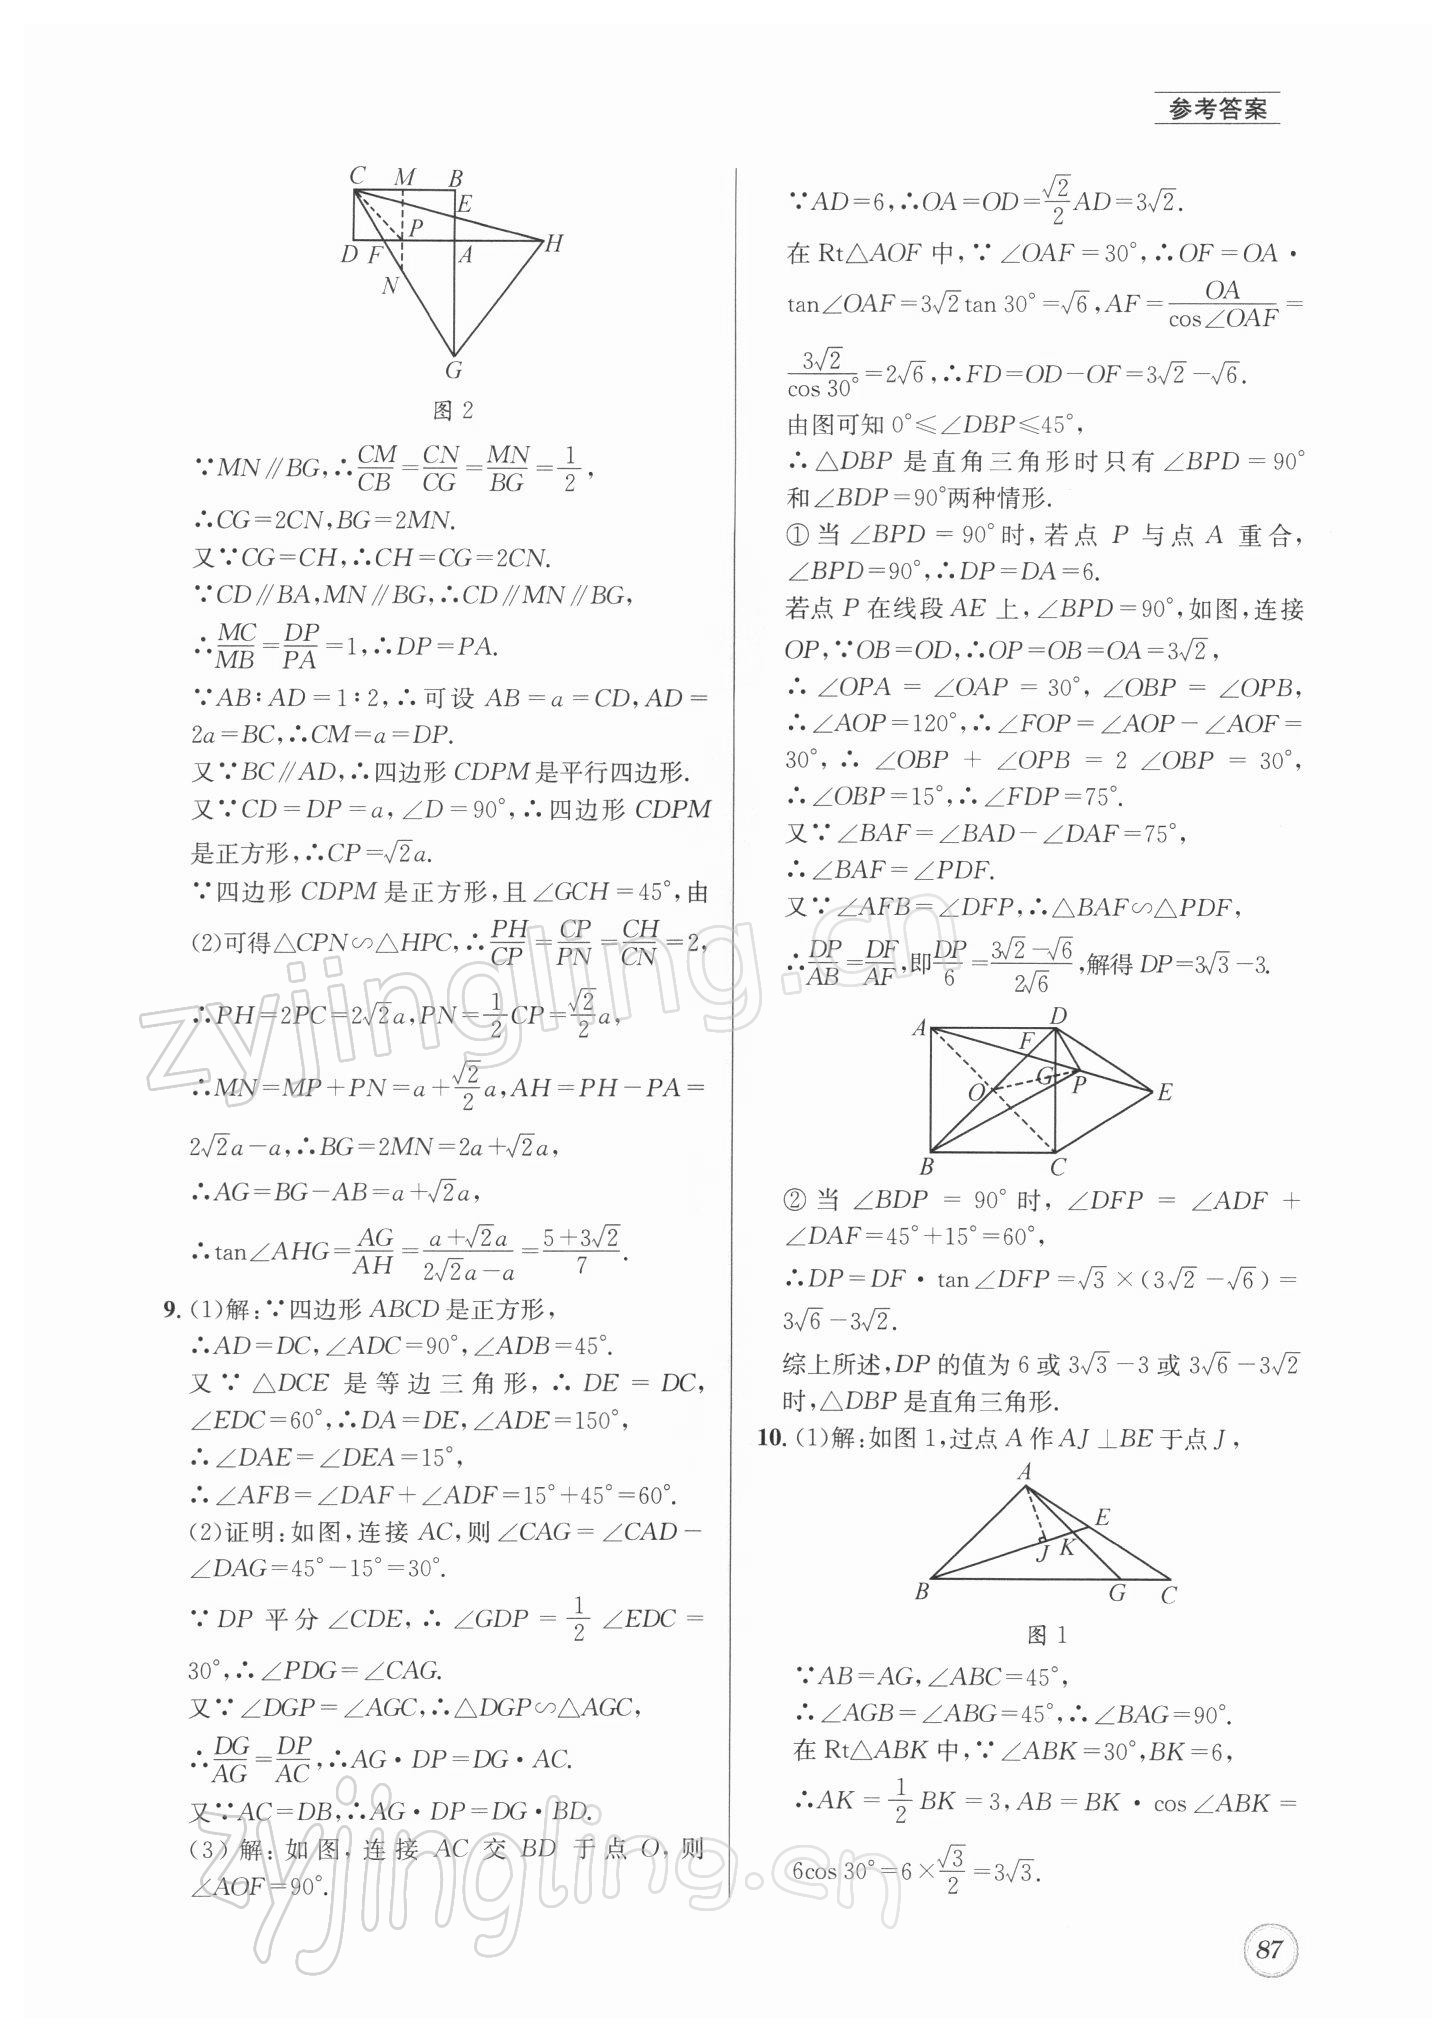 参考答案
C M B
E
P
D F A H
N
G
图 2
∵MN∥BG,∴CM/CB=CN/CG=MN/BG=1/2,
∴CG=2CN,BG=2MN.
又∵CG=CH,∴CH=CG=2CN.
∵CD∥BA,MN∥BG,∴CD∥MN∥BG,
∴MC/MB=DP/PA=1,∴DP=PA.
∵AB∶AD=1∶2,∴可设 AB=a=CD,AD=
2a=BC,∴CM=a=DP.
又∵BC∥AD,∴四边形 CDPM 是平行四边形.
又∵CD=DP=a,∠D=90°,∴四边形 CDPM
是正方形,∴CP=√2a.
∵四边形 CDPM 是正方形,且∠GCH=45°,由
(2)可得△CPN∽△HPC,∴PH/CP=CP/PN=CH/CN=2,
∴PH=2PC=2√2a,PN=1/2CP=√2/2a,
∴MN=MP+PN=a+√2/2a,AH=PH-PA=
2√2a-a,∴BG=2MN=2a+√2a,
∴AG=BG-AB=a+√2a,
∴tan∠AHG=AG/AH=(a+√2a)/(2√2a-a)=(5+3√2)/7.
9. (1)解:∵四边形 ABCD 是正方形,
∴AD=DC,∠ADC=90°,∠ADB=45°.
又∵△DCE 是等边三角形,∴DE=DC,
∠EDC=60°,∴DA=DE,∠ADE=150°,
∴∠DAE=∠DEA=15°,
∴∠AFB=∠DAF+∠ADF=15°+45°=60°.
(2)证明:如图,连接 AC,则∠CAG=∠CAD-
∠DAG=45°-15°=30°.
∵DP 平分∠CDE,∴∠GDP=1/2∠EDC=
30°,∴∠PDG=∠CAG.
又∵∠DGP=∠AGC,∴△DGP∽△AGC,
∴DG/AG=DP/AC,∴AG·DP=DG·AC.
又∵AC=DB,∴AG·DP=DG·BD.
(3)解:如图,连接 AC 交 BD 于点 O,则
∠AOF=90°.
∵AD=6,∴OA=OD=√2/2AD=3√2.
在 Rt△AOF 中,∵∠OAF=30°,∴OF=OA·
tan∠OAF=3√2tan 30°=√6,AF=OA/cos∠OAF=
3√2/cos 30°=2√6,∴FD=OD-OF=3√2-√6.
由图可知 0°≤∠DBP≤45°,
∴△DBP 是直角三角形时只有∠BPD=90°
和∠BDP=90°两种情形.
①当∠BPD=90°时,若点 P 与点 A 重合,
∠BPD=90°,∴DP=DA=6.
若点 P 在线段 AE 上,∠BPD=90°,如图,连接
OP,∵OB=OD,∴OP=OB=OA=3√2,
∴∠OPA=∠OAP=30°,∠OBP=∠OPB,
∴∠AOP=120°,∴∠FOP=∠AOP-∠AOF=
30°,∴∠OBP+∠OPB=2∠OBP=30°,
∴∠OBP=15°,∴∠FDP=75°.
又∵∠BAF=∠BAD-∠DAF=75°,
∴∠BAF=∠PDF.
又∵∠AFB=∠DFP,∴△BAF∽△PDF,
∴DP/AB=DF/AF,即DP/6=(3√2-√6)/2√6,解得 DP=3√3-3.
A D
F
O G P E
B C
②当∠BDP=90°时,∠DFP=∠ADF+
∠DAF=45°+15°=60°,
∴DP=DF·tan∠DFP=√3×(3√2-√6)=
3√6-3√2.
综上所述,DP 的值为 6 或 3√3-3 或 3√6-3√2
时,△DBP 是直角三角形.
10. (1)解:如图 1,过点 A 作 AJ⊥BE 于点 J,
A
E
J K
B G C
图 1
∵AB=AG,∠ABC=45°,
∴∠AGB=∠ABG=45°,∴∠BAG=90°.
在 Rt△ABK 中,∵∠ABK=30°,BK=6,
∴AK=1/2BK=3,AB=BK·cos∠ABK=
6cos 30°=6×√3/2=3√3.
87
zyjingling.cn
zyjingling.cn